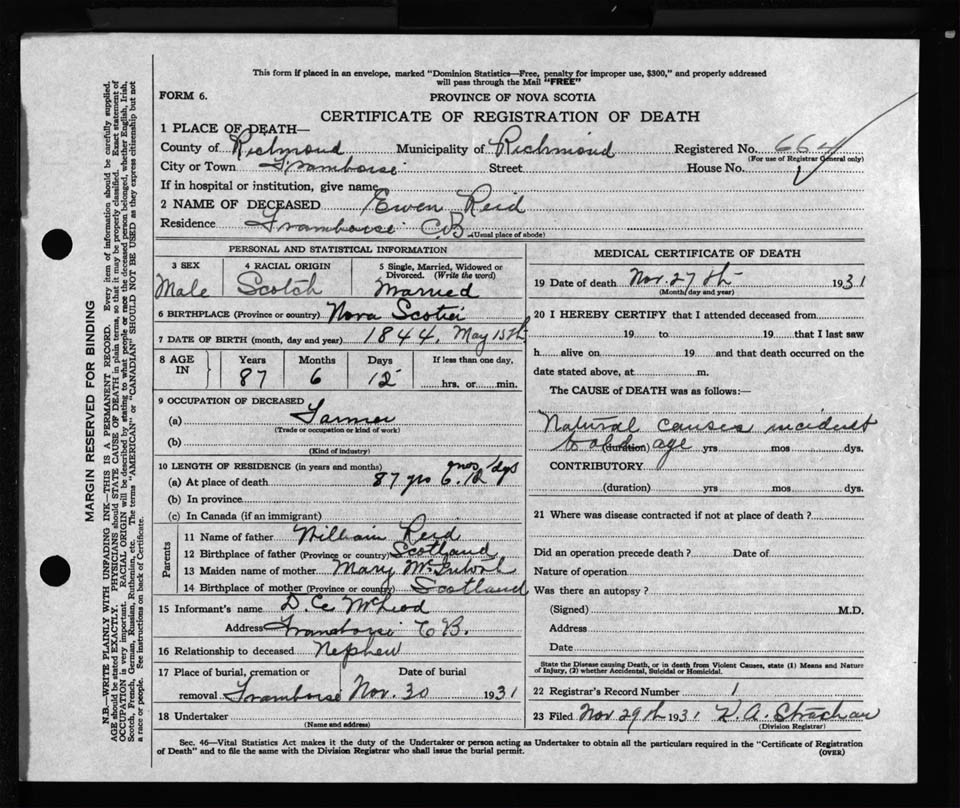 This form if placed in an envelope, marked "Dominion Statistics—Free, penalty for improper use, $300," and properly addressed
will pass through the Mail "FREE"
FORM 6.
PROVINCE OF NOVA SCOTIA
CERTIFICATE OF REGISTRATION OF DEATH
1 PLACE OF DEATH—
County of Richmond Municipality of Richmond Registered No. 664
(For use of Registrar General only)
City or Town Framboise Street House No.
If in hospital or institution, give name
2 NAME OF DECEASED Ewen Reid
Residence Framboise C.B. (Usual place of abode)
PERSONAL AND STATISTICAL INFORMATION
3 SEX 4 RACIAL ORIGIN 5 Single, Married, Widowed or Divorced. (Write the word)
Male Scotch Married
6 BIRTHPLACE (Province or country) Nova Scotia
7 DATE OF BIRTH (month, day and year) 1844, May 15th
8 AGE IN Years Months Days If less than one day,
87 6 12 hrs. or min.
9 OCCUPATION OF DECEASED
(a) Farmer
(Trade or occupation or kind of work)
(b)
(Kind of industry)
10 LENGTH OF RESIDENCE (in years and months)
(a) At place of death 87 yrs 6 mos 12 dys
(b) In province
(c) In Canada (if an immigrant)
Parents
11 Name of father William Reid
12 Birthplace of father (Province or country) Scotland
13 Maiden name of mother Mary
14 Birthplace of mother (Province or country) Scotland
15 Informant's name D. C. McLeod
Address Framboise C.B.
16 Relationship to deceased Nephew
17 Place of burial, cremation or Date of burial
removal Framboise Nov. 30 1931
18 Undertaker
(Name and address)
MEDICAL CERTIFICATE OF DEATH
19 Date of death Nov. 27th 1931
(Month, day and year)
20 I HEREBY CERTIFY that I attended deceased from
19 to 19 that I last saw
h alive on 19 and that death occurred on the
date stated above, at m.
The CAUSE of DEATH was as follows:—
Natural causes incident
to old age
(duration) yrs mos dys.
CONTRIBUTORY
(duration) yrs mos dys.
21 Where was disease contracted if not at place of death?
Did an operation precede death? Date of
Nature of operation
Was there an autopsy?
(Signed) M.D.
Address
Date
State the Disease causing Death, or in death from Violent Causes, state (1) Means and Nature
of Injury, (2) whether Accidental, Suicidal or Homicidal.
22 Registrar's Record Number 1
23 Filed Nov 29th 1931 D. A. Strachan
(Division Registrar)
Sec. 46—Vital Statistics Act makes it the duty of the Undertaker or person acting as Undertaker to obtain all the particulars required in the "Certificate of Registration
of Death" and to file the same with the Division Registrar who shall issue the burial permit.
(OVER)
MARGIN RESERVED FOR BINDING
N.B.—WRITE PLAINLY WITH UNFADING INK—THIS IS A PERMANENT RECORD. Every item of information should be carefully supplied.
AGE should be stated EXACTLY. PHYSICIANS should STATE CAUSE OF DEATH in plain terms, so that it may be properly classified. Exact statement of
OCCUPATION is very important. RACIAL ORIGIN will be described by stating to what people or race the deceased person belonged, whether English, Irish,
Scotch, French, German, Russian, Ruthenian, etc. The terms "AMERICAN" or "CANADIAN" SHOULD NOT BE USED as they express citizenship but not
a race or people. See instructions on back of Certificate.